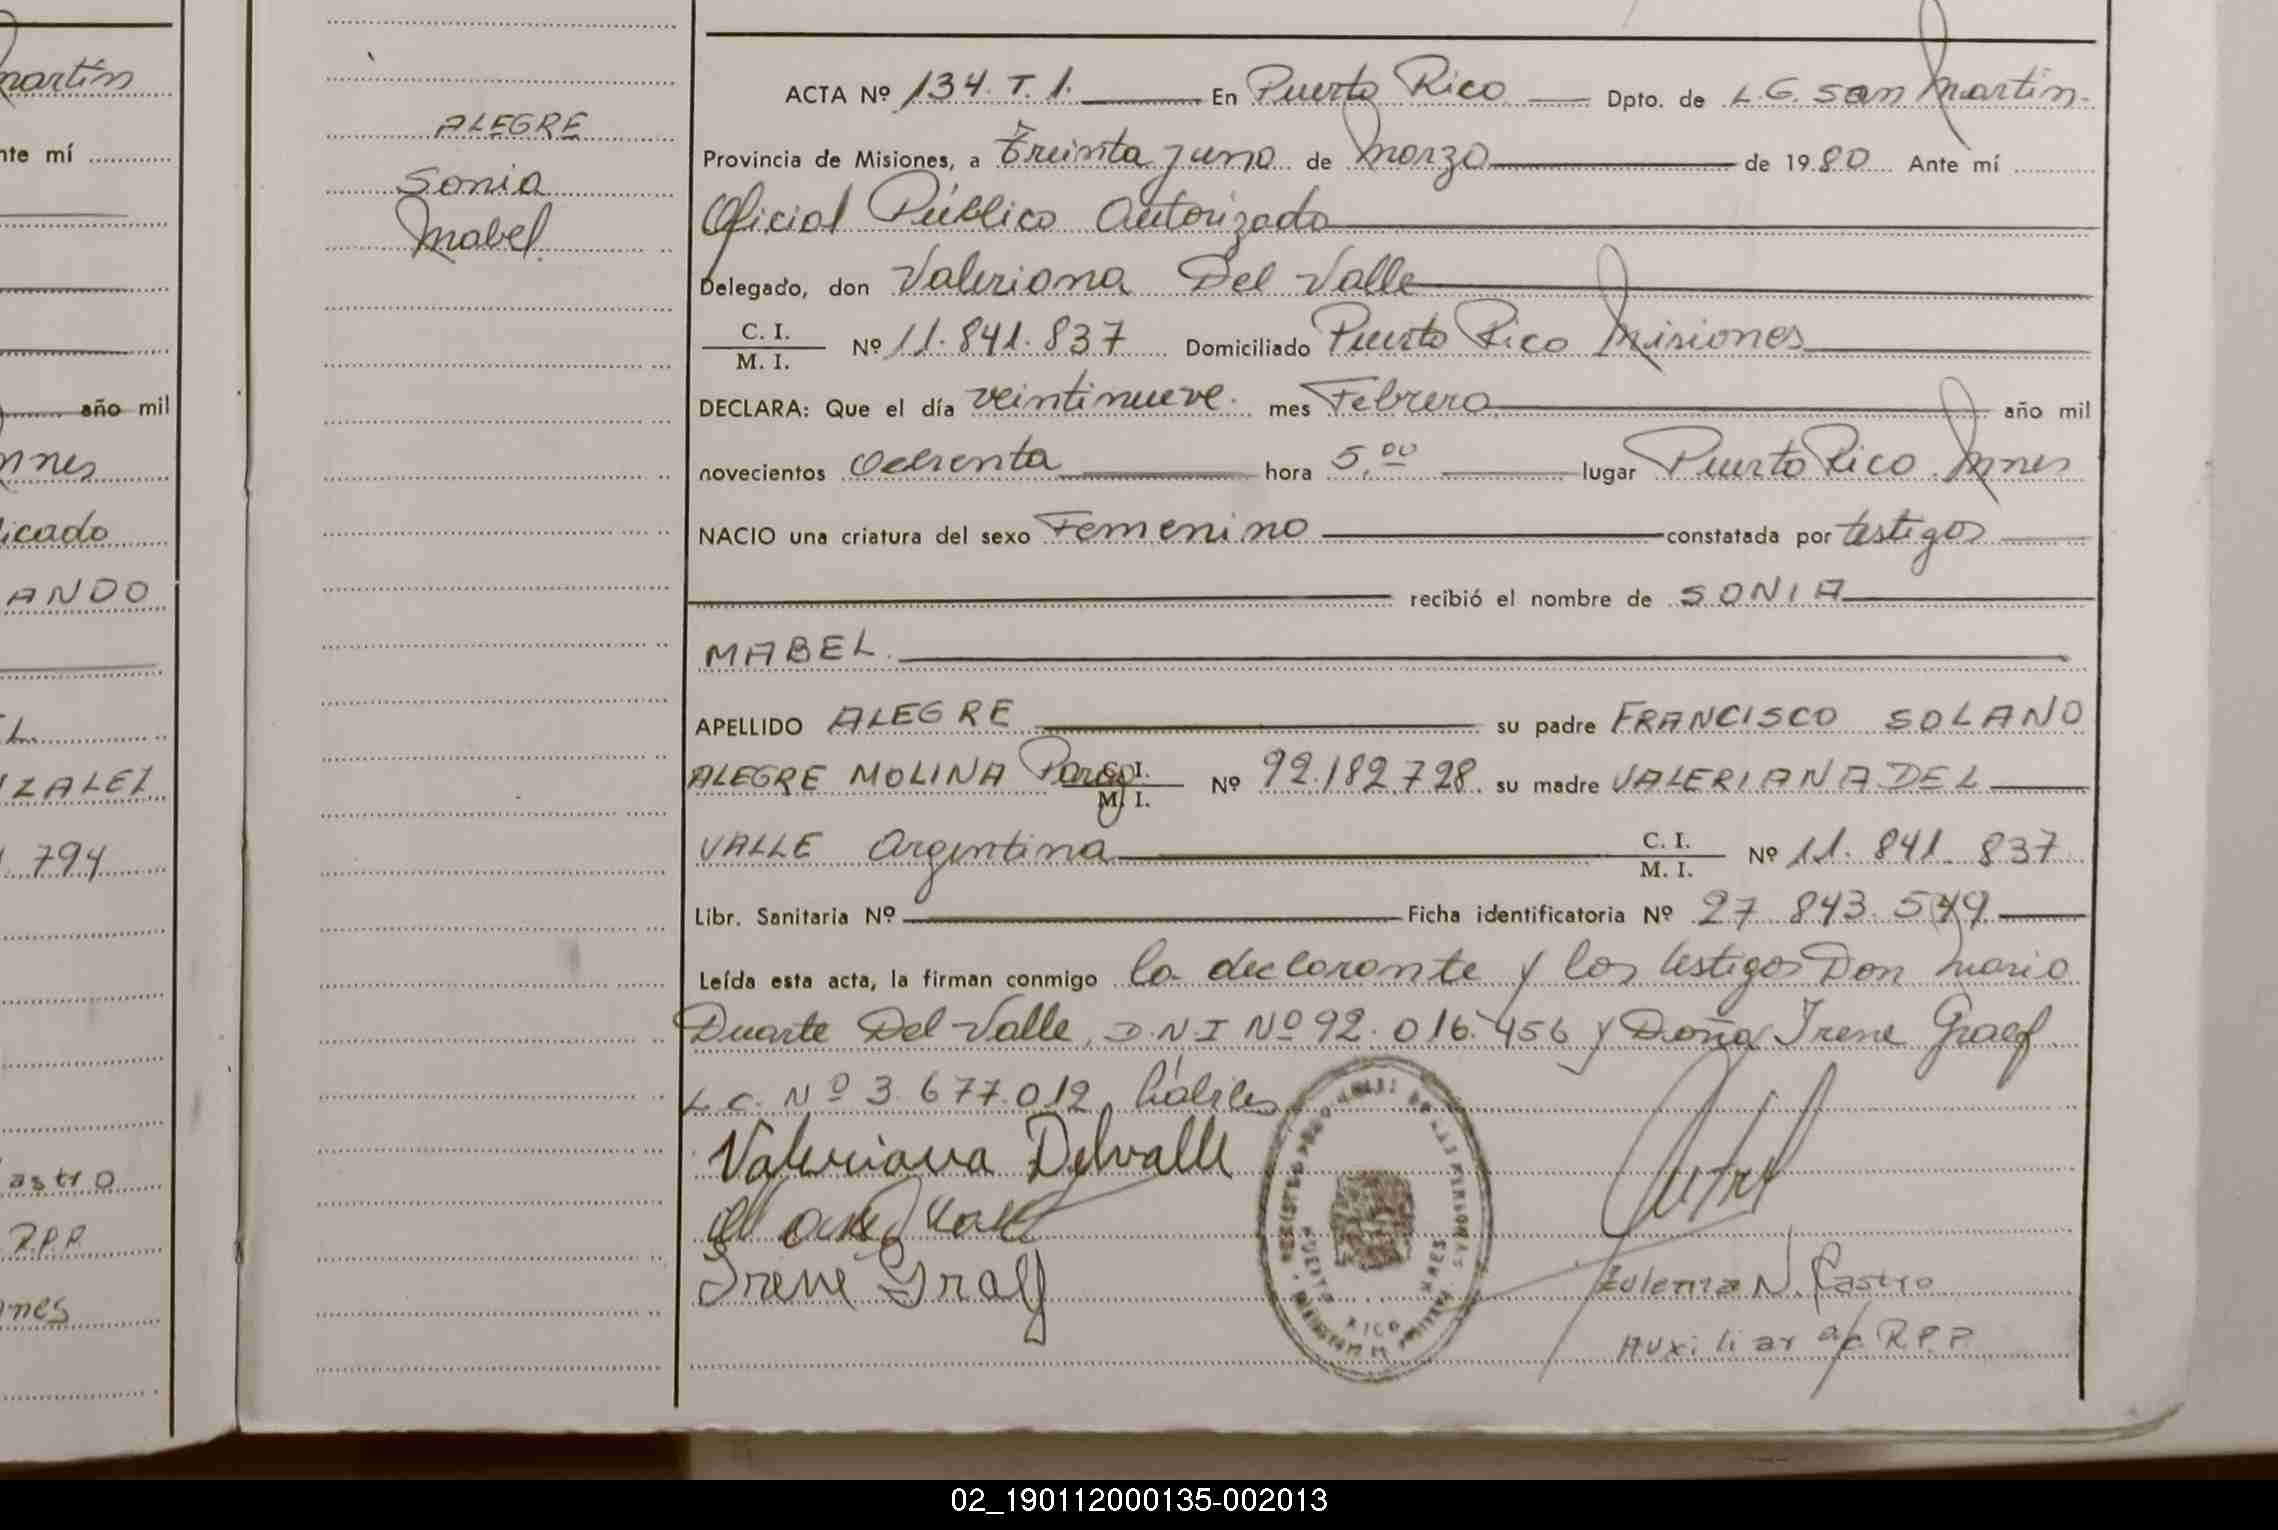 martín
nte mí
año mil
nnes
icado
ANDO
L
ZALEZ
794
astro
R.P.P.
nes
ALEGRE
Sonia
Mabel.
ACTA Nº 134. T. 1. En Puerto Rico Dpto. de L. G. San Martin.
Provincia de Misiones, a Treinta y uno de Marzo de 1980 Ante mí
Oficial Público Autorizado
Delegado, don Valeriana Del Valle
C. I.
M. I.
Nº 11.841.837 Domiciliado Puerto Rico Misiones
DECLARA: Que el día veintinueve. mes Febrero año mil
novecientos Ochenta hora 5,00 lugar Puerto Rico. Mnes
NACIO una criatura del sexo Femenino constatada por testigos
recibió el nombre de SONIA
MABEL.
APELLIDO ALEGRE su padre FRANCISCO SOLANO
ALEGRE MOLINA Parag. C. I. M. I. Nº 92.182.728. su madre VALERIANA DEL
VALLE Argentina C. I. M. I. Nº 11. 841. 837
Libr. Sanitaria Nº Ficha identificatoria Nº 27.843.549
Leída esta acta, la firman conmigo la declarante y los testigos Don Mario
Duarte Del Valle, D.N.I Nº 92.016.456 y Doña Irene Graef
L.C. Nº 3.677.012 hábiles
Valeriana Delvalle
Irene Graef
PUERTO RICO MNES
Eulenia N. Castro
Auxiliar a/c. R.P.P.
02_190112000135-002013